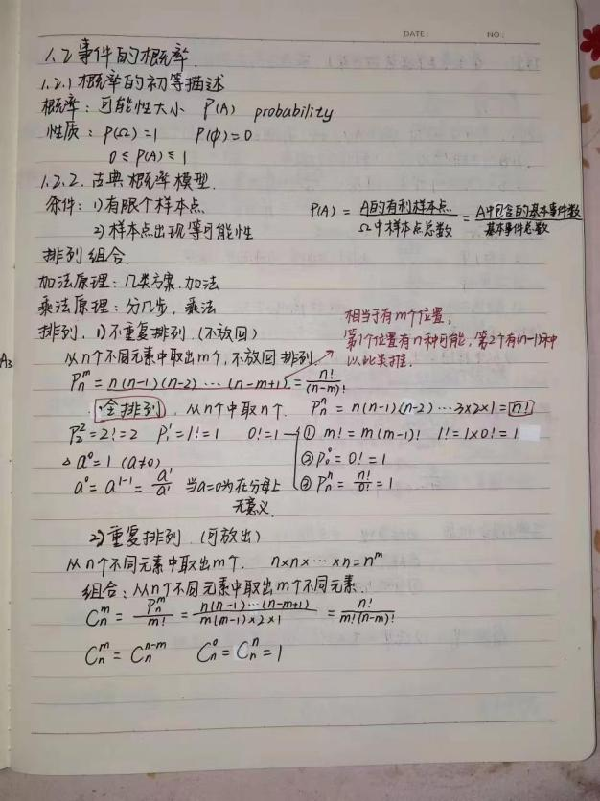 DATE: NO:
1.2 事件的概率
1.2.1 概率的初等描述
概率：可能性大小 P(A) probability
性质：P(Ω)=1 P(φ)=0
0≤P(A)≤1
1.2.2. 古典概率模型.
条件：1)有限个样本点
P(A) = A的有利样本点/Ω中样本点总数 = A中包含的基本事件数/基本事件总数
2)样本点出现等可能性
排列组合
加法原理：几类方案.加法
乘法原理：分几步，乘法
相当于有m个位置,
排列. 1)不重复排列.(不放回)
第1个位置有n种可能,第2个有(n-1)种
以此类推.
从n个不同元素中取出m个,不放回排列.
Pₙᵐ = n(n-1)(n-2)⋯(n-m+1) = n!/(n-m)!
全排列, 从n个中取n个. Pₙⁿ = n(n-1)(n-2)⋯3×2×1=n!
P₂²=2!=2 P₁¹=1!=1 0!=1→① m!=m(m-1)! 1!=1×0!=1
△ a⁰=1 (a≠0) ②P₀⁰=0!=1
a⁰=a¹⁻¹=a¹/a¹ 当a=0为在分母上 ③Pₙⁿ=n!/0!=1
无意义.
2)重复排列.(可放出)
从n个不同元素中取出m个. n×n×⋯×n=nᵐ
组合：从n个不同元素中取出m个不同元素.
Cₙᵐ = Pₙᵐ/m! = n(n-1)⋯(n-m+1)/m(m-1)×2×1 = n!/m!(n-m)!
Cₙᵐ = Cₙⁿ⁻ᵐ Cₙ⁰=Cₙⁿ=1